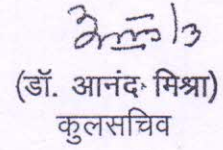 (डॉ. आनंद मिश्रा)
कुलसचिव